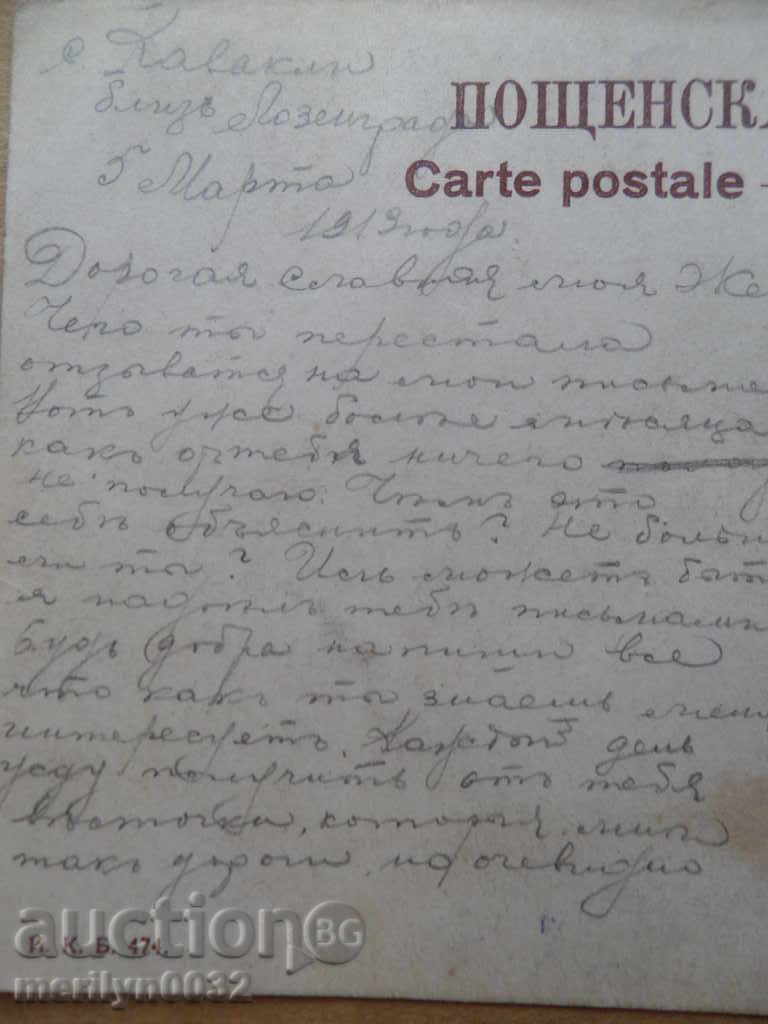 с. Кавакли
близъ Лозенграда
5 Марта
1913 года.
ПОЩЕНСКА
Carte postale -
Дорогая славная моя Же
Чего ты перестала
отзыватся на мои письма
Вотъ уже болѣе мѣсяца
какъ от тебя ничего
не получаю. Чѣмъ это
себѣ объяснить? Не больн
ли ты? Иль можетъ быт
я надоѣлъ тебѣ письмами
Будь добра напиши все
что какъ ты знаешь меня
интересуетъ. Каждый день
жду получить отъ тебя
вѣсточки, которыя мнѣ
такъ дороги, но очевидно
П. К. Б. 474.
auction BG
merilyn0032